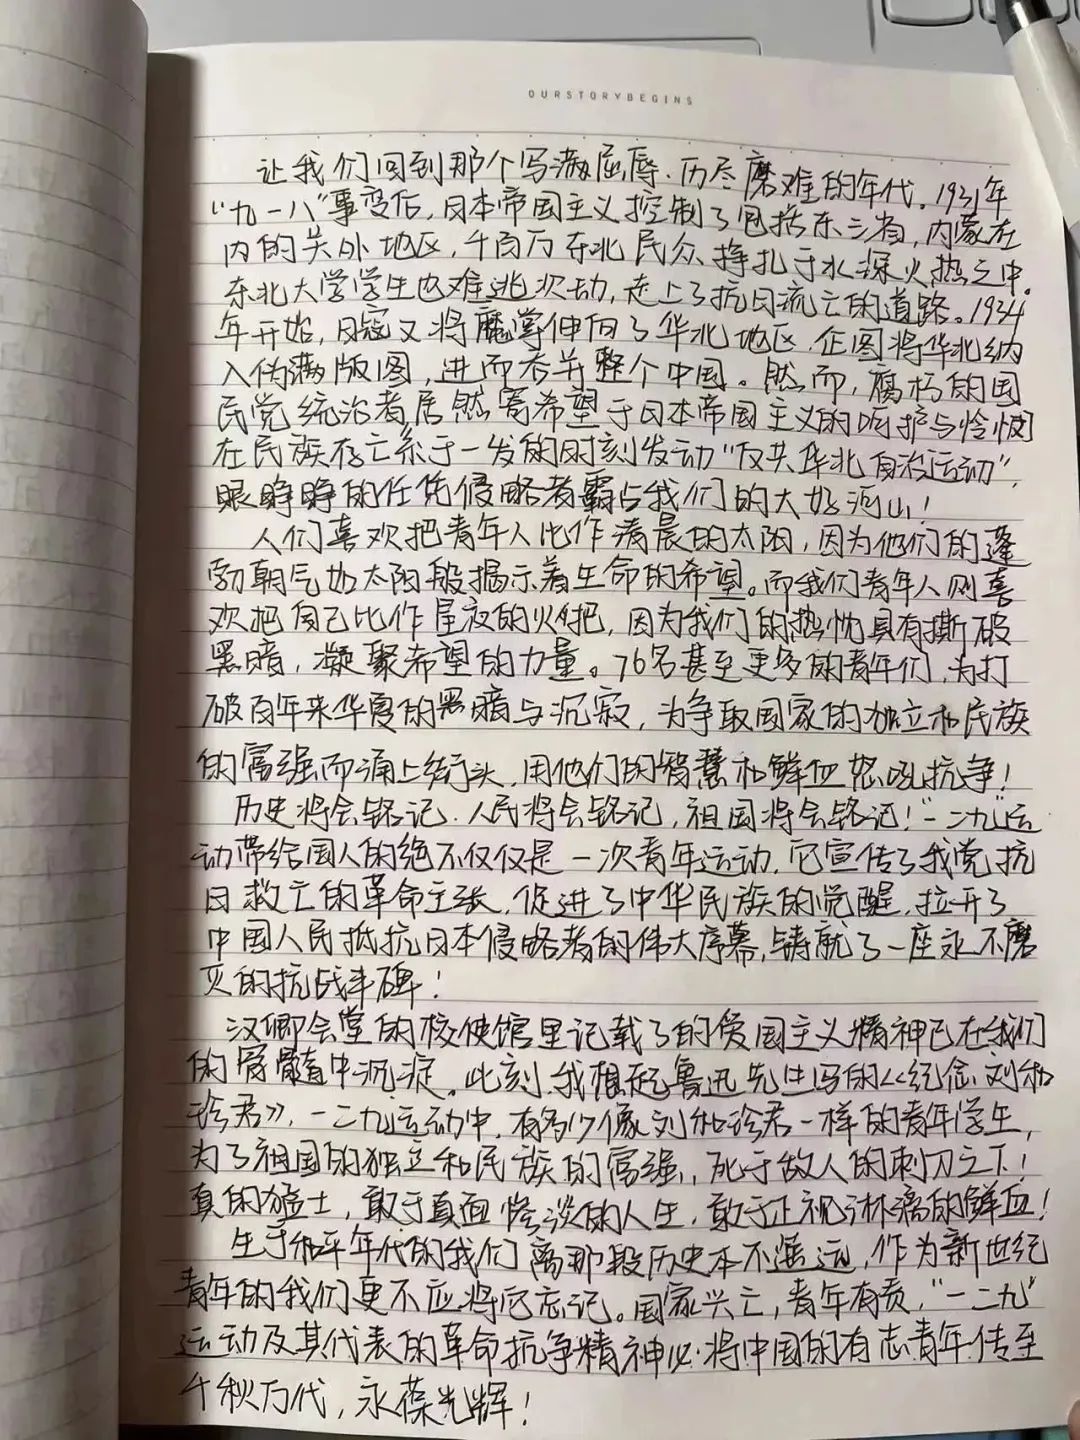 OURSTORYBEGINS
让我们回到那个写满屈辱、历尽磨难的年代。1931年
“九一八”事变后,日本帝国主义控制了包括东三省,内蒙在
内的关外地区,千百万东北民众挣扎于水深火热之中。
东北大学学生也难逃次劫,走上了抗日流亡的道路。1934
年开始,日寇又将魔掌伸向了华北地区,企图将华北纳
入伪满版图,进而吞并整个中国。然而,腐朽的国
民党统治者居然寄希望于日本帝国主义的呵护与怜悯
在民族存亡系于一发的时刻发动“反共华北自治运动”,
眼睁睁的任凭侵略者霸占我们的大好河山!
人们喜欢把青年人比作清晨的太阳,因为他们的蓬
勃朝气如太阳般揭示着生命的希望。而我们青年人则喜
欢把自己比作星夜的火把,因为我们的热忱具有撕破
黑暗,凝聚希望的力量。76名甚至更多的青年们,为打
破百年来华夏的黑暗与沉寂,为争取国家的独立和民族
的富强而涌上街头,用他们的智慧和鲜血怒吼抗争!
历史将会铭记,人民将会铭记,祖国将会铭记!“一二九”运
动带给国人的绝不仅仅是一次青年运动,它宣传了我党抗
日救亡的革命主张,促进了中华民族的觉醒,拉开了
中国人民抵抗日本侵略者的伟大序幕,铸就了一座永不磨
灭的抗战丰碑!
汉卿会堂的校史馆里记载了的爱国主义精神已在我们
的骨髓中沉淀。此刻,我想起鲁迅先生写的《纪念刘和
珍君》,一二九运动中,有多少像刘和珍君一样的青年学生,
为了祖国的独立和民族的富强,死于敌人的刺刀之下!
真的猛士,敢于直面惨淡的人生,敢于正视淋漓的鲜血!
生于和平年代的我们离那段历史本不遥远,作为新世纪
青年的我们更不应将它忘记。国家兴亡,青年有责,“一二九”
运动及其代表的革命抗争精神必将中国的有志青年传至
千秋万代,永葆光辉!